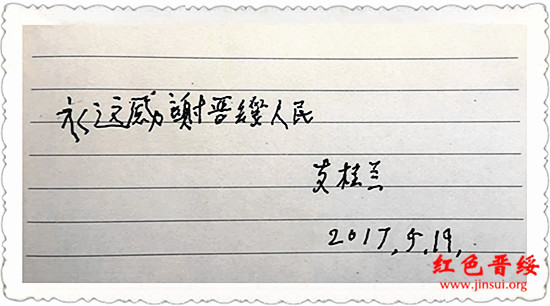 永远感謝晋綏人民
支桂兰
2017.5.19.
红色晋绥
www.jinsui.org